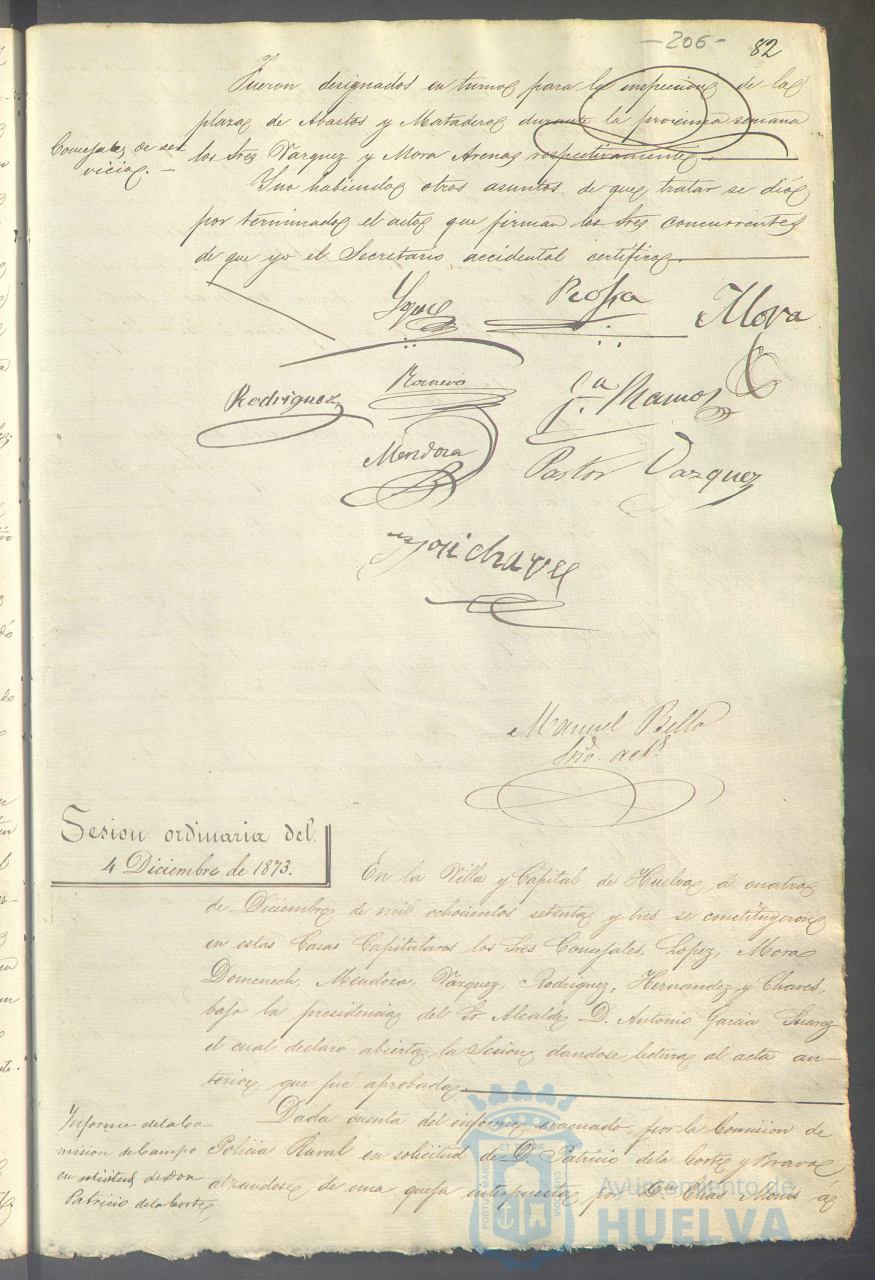 -206-
82
Fueron designados en turno para la inspeccion de la
plaza de Abastos y Matadero durante la proxima semana
Concejales de ser
vicio. -
los Sres Vazquez y Mora Arenas respectivamente.
Y no habiendo otros asuntos de que tratar se dió
por terminado el acto que firman los Sres concurrentes
de que yo el Secretario accidental certifico.
Mora
Rodriguez
Romero
Ramos
Mendoza
Pastor Vazquez
José Chaves
Manuel Bello
Srio accl
Sesion ordinaria del
4 Diciembre de 1873.
En la Villa y Capital de Huelva á cuatro
de Diciembre de mil ochocientos setenta y tres se constituyeron
en estas Casas Capitulares los Sres Concejales, Lopez, Mora
Domenech, Mendoza, Vazquez, Rodriguez, Hernandez y Chaves,
bajo la presidencia del Sr. Alcalde D. Antonio Garcia Suarez
el cual declaró abierta la Sesion dandose lectura al acta an-
terior que fué aprobada
Informe de la Co-
mision de Campo
en solicitud de Don
Patricio de la Corte
Dada cuenta del informe evacuado por la Comision de
Policia Rural en solicitud de D. Patricio de la Corte y Bravo
alzandose de una queja interpuesta por D. á
Ayuntamiento de
HUELVA